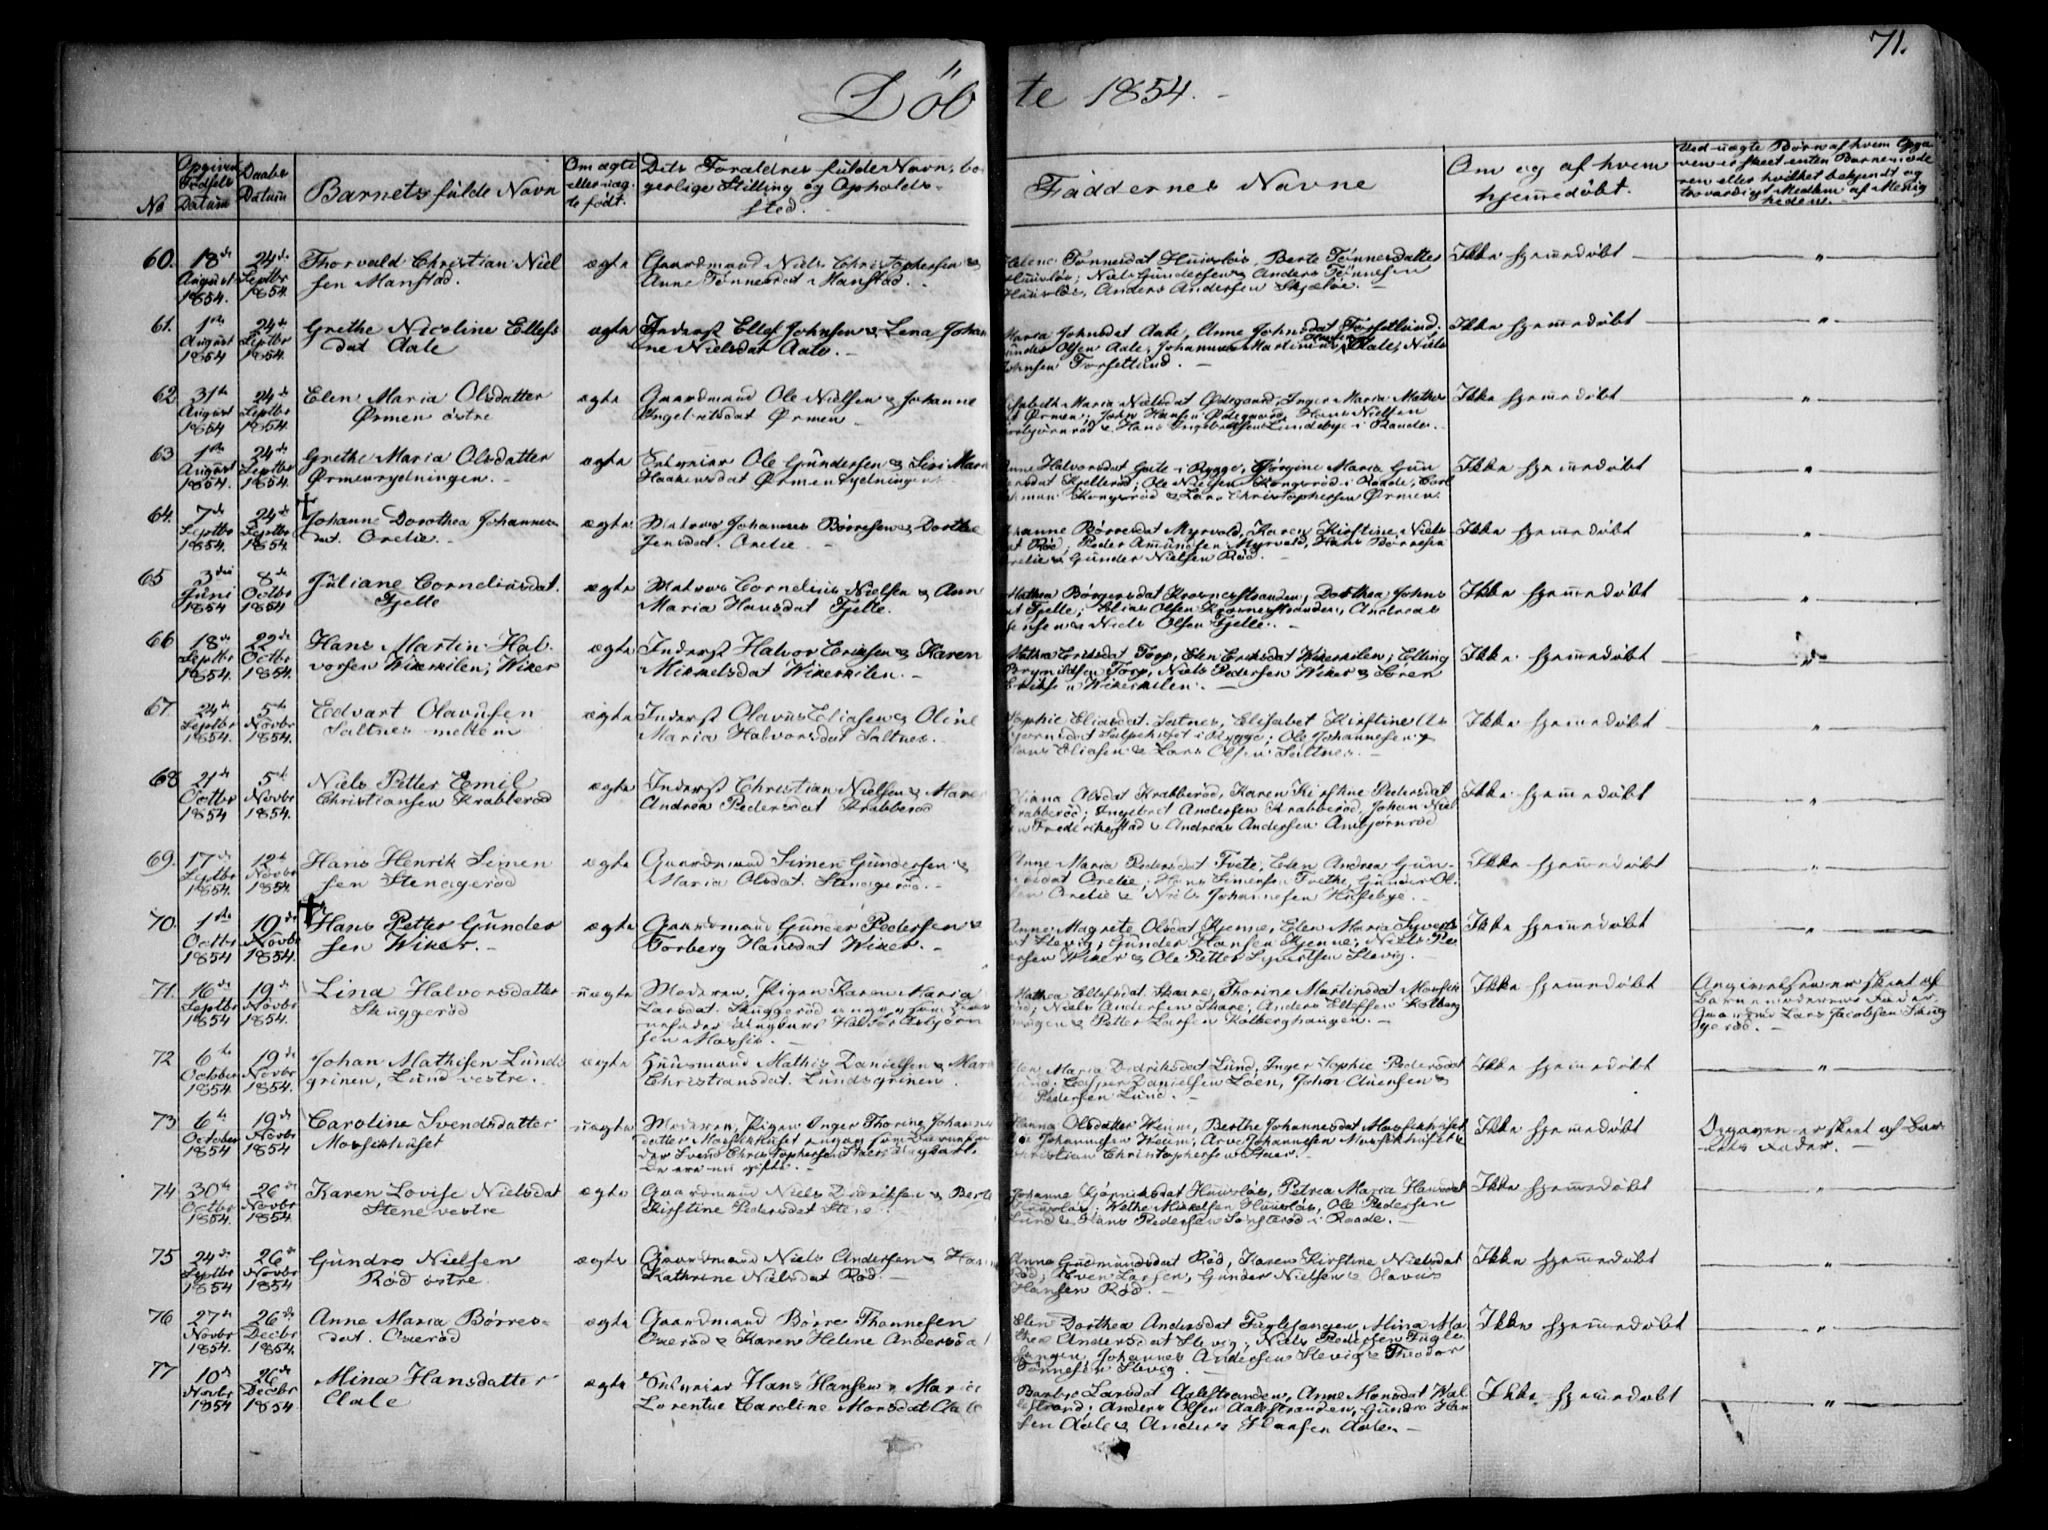 71.
Döbte 1854.
No
Opgiven Födsels Datum
Daabs Datum
Barnets fulde Navn
Om ægte eller uægte födt.
Dets Forældres fulde Navn, borgerlige Stilling og Opholdssted.
Faddernes Navne
Om og af hvem hjemmedöbt.
Ved uægte Børn af hvem Opgaven er skeet enten Barnemoderen eller hvilket bekjendt og troværdigt Medlem af Menigheden.
60. 18de August 1854. 24de Septbr 1854. Thorvald Christian Nielsen Manstad. ægte Gaardmand Niels Christophersen & Anne Tønnesdat Manstad.
Tønnesdat Huusløs, Berte Tønnesdatter Huusløs; Niels Gundersen & Anders Tønnesen Huusløs, Anders Andersen Skjæløe. Ikke hjemmedøbt "
61. 1ste August 1854 24de Septbr 1854 Grethe Nicoline Ellefsdat Aale ægte Inderst Ellef Johnsen & Lena Johanne Nielsdat Aale.
Maria Johnsdat Aale, Anne Johnsdat Torsetlund. Gunder Olsen Aale, Johannes Martinius Hansen Aale, Niels Johnsen Torsetlund. Ikke hjemmedøbt "
62 31te August 1854 24de Septbr 1854. Elen Maria Olsdatter Ørmen östre ægte Gaardmand Ole Nielsen & Johanne Engebretsdat Ørmen
Elisabeth Maria Nielsdat Ødegaard, Inger Maria Mathisdat Ørmen; John Hansen Ødegaard, Hans Nielsen & Hans Ingebretsen Lundebye i Raade. Ikke hjemmedøbt "
63 1ste August 1854. 24de Septbr 1854. Grethe Maria Olsdatter Ørmenrydningen. ægte Ole Gundersen & Siri Maria Haakensdat Ørmenrydningen
Anne Halvorsdat Gute i Rygge, Jørgine Maria Gundersdat Kjellerød; Ole Nielsen Kongsrød i Raade, Carl Kongsrød & Lars Christophersen Ørmen. Ikke hjemmedøbt "
64. 7de Septbr 1854. 24de Septbr 1854. † Johanne Dorothea Johannesdat. Orelie. ægte Matros Johannes Børresen & Dorthe Jensdat. Orelie.
Børresdat Myrvold, Karen Kirstine Nielsdat Rød; Peder Amundsen Myrvold, Hans Børresen Orelie & Gunder Nielsen Rød. Ikke hjemmedøbt "
65 3die Juni 1854 8de Octbr 1854 Juliane Corneliusdat. Fjelle ægte Matros Cornelius Nielsen & Ann Maria Hansdat Fjelle.
Mathea Børgersdat Krosnesstranden, Dorthea Johnsdat Fjelle; Elias Olsen Krosnesstranden, Andreas Jensen & Niels Olsen Fjelle. Ikke hjemmedøbt "
66 18de Septbr 1854. 22de Octbr 1854. Hans Martin Halvorsen Wikerkilen, Wiker ægte Inderst Halvor Eriksen & Karen Mikkelsdat Wikerkilen.
Mathea Eriksdat Torp, Elen Eriksdat Wikerkilen; Elling Brynildsen Torp, Niels Pedersen Wiker & Søren Eriksen Wikerkilen. Ikke hjemmedøbt "
67. 24de Septbr 1854. 5te Novbr 1854. Edvart Olavusen Saltnes mellem ægte Inderst Olavus Eliasen & Oline Maria Halvorsdat Saltnes.
Sophie Eliasdat. Saltnes, Elisabet Kirstine Asbjørnsdat i Rygge; Ole Johannesen, Hans Eliasen & Lars Olsen Saltnes. Ikke hjemmedøbt "
68 21de Octbr 1854 5te Novbr 1854. Niels Petter Emil Christiansen Krabberød ægte Inderst Christian Nielsen & Maren Andrea Pedersdat Krabberød
Olsdat Krabberød, Karen Kirstine Pedersdat Krabberød; Ingebret Andersen Krabberød, Johan Nielsen Frederikstad & Andreas Andersen Ambjørnrød Ikke hjemmedøbt "
69. 17de Septbr 1854. 12te Novbr 1854. Hans Henrik Simensen Stenagerød ægte Gaardmand Simen Gundersen & Maria Olsdat. Stenagerød.
Anne Maria Pedersdat Tvete, Elen Andrea Gundersdat Orelie, Hans Simensen Tvethe, Gunder Olsen Orelie & Niels Johannesen Husebye. Ikke hjemmedøbt "
70. 1ste Octbr 1854 19de Novbr 1854. † Hans Petter Gundersen Wiker. ægte Gaardmand Gunder Pedersen & Torberg Hansdat Wiker.
Anne Magrete Olsdat Kjenne, Elen Maria Syvertsdat Slevig; Gunder Hansen Kjenne, Niels Pedersen Wiker & Ole Petter Syvertsen Slevig. Ikke hjemmedøbt "
71. 16de Septbr 1854 19de Novbr 1854. Lina Halvorsdatter Skuggerød uægte Moderen, Pigen Karen Maria Larsdat. Skuggerød, Ungkarl Halvor Asbjørnsen Mossik.
Mathea Ellefsdat. Skaare, Thorine Martinsdat; Niels Andersen Skare, Anders Ellefsen Kolberghaugen & Petter Larsen Kolberghaugen. Ikke hjemmedøbt Angivelsen er skeet af Barnemoderens Fader, Gaardmd Lars Jacobsen Skuggerød.
72 6te October 1854. 19de Novbr 1854. Johan Mathisen Lundsgrinen, Lund vestre. ægte Huusmand Mathis Danielsen & Maria Christiansdat. Lundsgrinen
Elen Maria Didriksdat Lund, Inger Sophie Pedersdat Lund; Casper Danielsen Løen, John Auensen & Pedersen Lund. Ikke hjemmedøbt "
73 6te October 1854 19de Novbr 1854 Caroline Svendsdatter Mossikhuset uægte Moderen, Pigen Inger Thorine Johannesdatter Mossikhuset, Svend Christophersen Staer, Ungkarl. De ere nu gifte.
Hanna Olsdatter Weum, Berthe Johannesdat Mossikhuset, Ole Johannesen Weum, Arve Johannesen Mossikhuset & Christian Christophersen Staer. Ikke hjemmedøbt Opgaven er skeet af Barnets Fader.
74 30te Octbr 1854. 26de Novbr 1854 Karen Lovise Nielsdat Stene vestre ægte Gaardmand Niels Didriksen & Berte Kirstine Pedersdat Stene.
Johanne Huusløs, Petrea Maria Hansdat Huusløs; Wethe Mikkelsen Huusløs, Ole Pedersen Lund & Hans Pedersen i Raade. Ikke hjemmedøbt "
75 24de Septbr 1854 26de Novbr 1854 Gundro Nielsen Rød østre ægte Gaardmand Niels Andersen & Kathrine Nielsdat Rød.
Anne Gudmundsdat Rød, Karen Kirstine Nielsdat Rød; Even Larsen, Gunder Nielsen & Olavus Hansen Rød. Ikke hjemmedøbt "
76 27de Novbr 1854. 26de Decbr 1854. Anne Maria Børresdat. Oxerød ægte Gaardmand Børre Thonnesen Oxerød & Karen Helene Andersdat
Elen Dorthea Andersdat Fuglesangen, Mina Mathea Andersdat Slevig; Niels Pedersen Fuglesangen, Johannes Andersen Slevig & Theodor Tønnesen Slevig. Ikke hjemmedøbt "
77 10de Novbr 1854 26de Decbr 1854. Mina Hansdatter Aale ægte Hans Hansen & Marie Lorentse Caroline Monsdat Aale
Barbro Larsdat Aalestranden, Anne Monsdat; Anders Olsen Aalestranden, Gundro Hansen Aale & Anders Hansen Aale. Ikke hjemmedøbt "